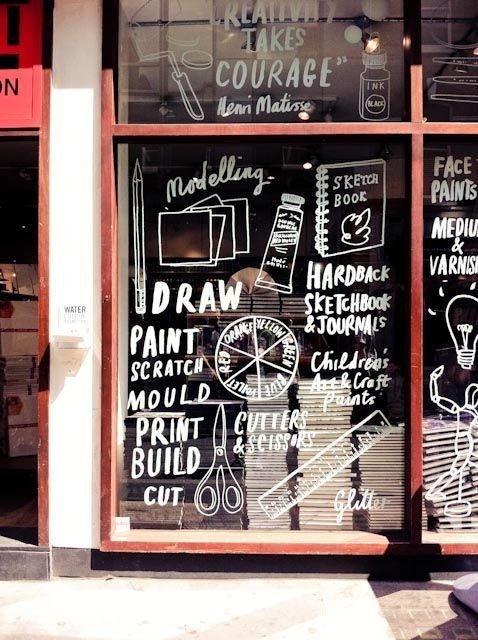 ON
"CREATIVITY
TAKES
COURAGE"
Henri Matisse
INK
BLACK
Modelling
SKETCH
BOOK
FACE
PAINTS
MEDIU
&
VARNIS
HARDBACK
SKETCHBOOK
& JOURNALS
DRAW
PAINT
SCRATCH
MOULD
PRINT
BUILD
CUT
RED ORANGE YELLOW GREEN BLUE VIOLET
Children's
Art & Craft
paints
CUTTERS
& SCISSORS
Glitter
WATER